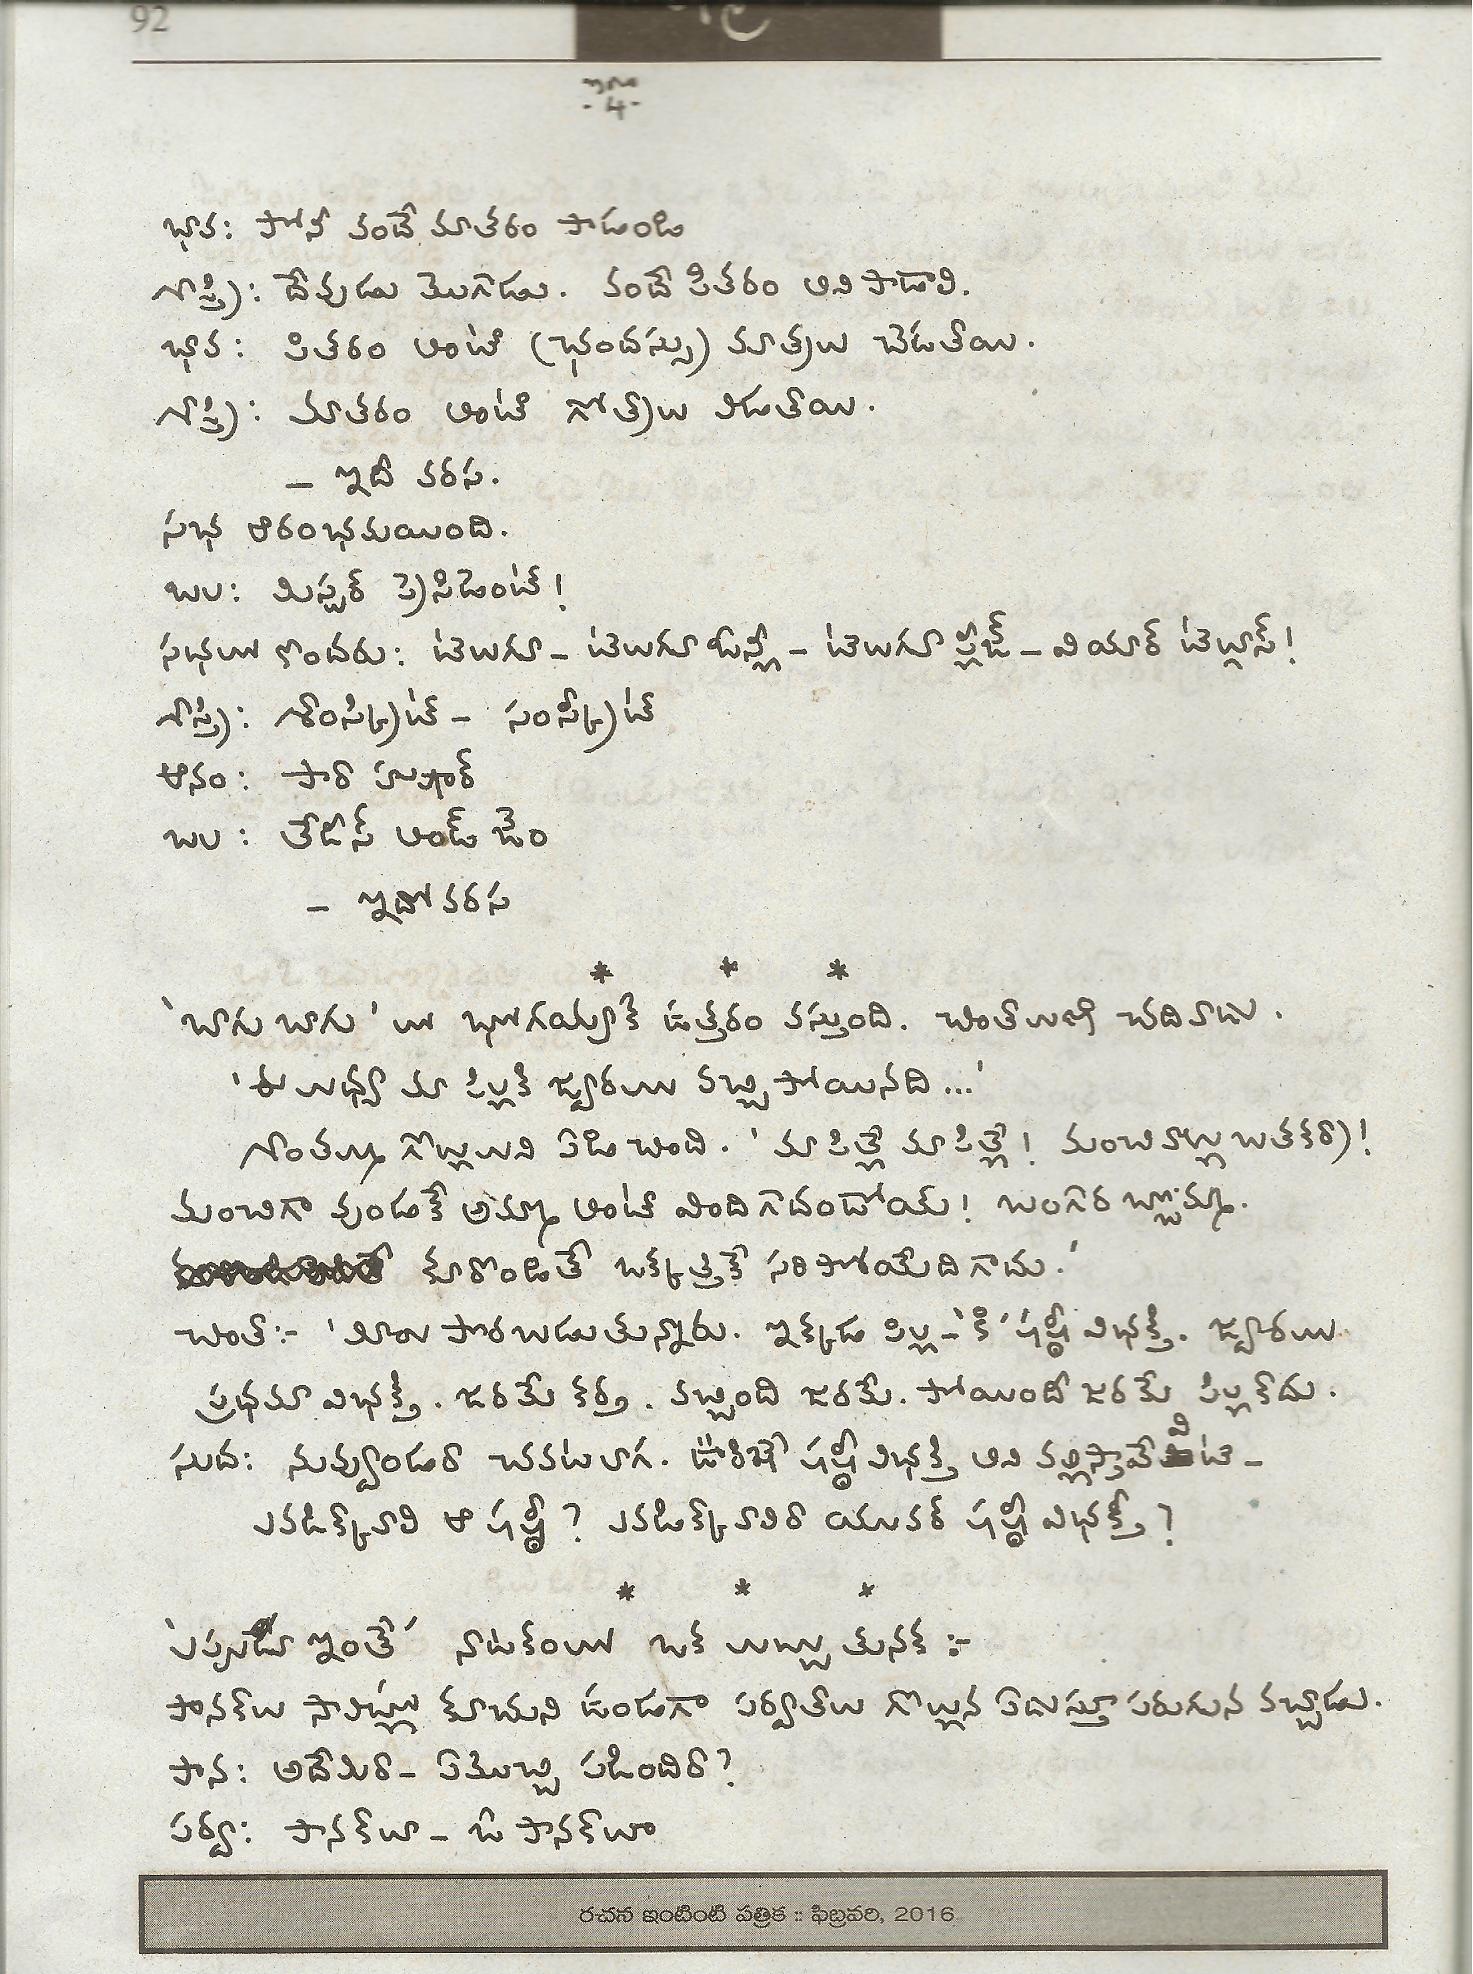 92
- 4 -
భావ: పోనీ వందే మాతరం పాడండి
శాస్త్రి: దేవుడు మొగాడు. వందే పితరం అని పాడాలి.
భావ: పితరం అంటే (ఛందస్సు) మాత్రలు చెడతాయి.
శాస్త్రి: మాతరం అంటే గోత్రాలు చెడతాయి.
– ఇదీ వరస.
సభ ఆరంభమయింది.
బల: మిస్టర్ ప్రెసిడెంట్!
సభలో కొందరు: తెలుగూ – తెలుగూ ప్లీస్ – తెలుగూ ప్లీజ్ – వియార్ తెల్గూస్!
శాస్త్రి: శంస్క్రిట్ – సంస్క్రిట్
ఆనం: పారి హుషార్
బల: లేడీస్ అండ్ జెం
– ఇదో వరస
* * *
'బాగు బాగు' లో భోగయ్యకి ఉత్తరం వస్తుంది. చింతలయ్య చదివాడు.
'ఈ మధ్య మా పిల్లకి జ్వరము వచ్చి పోయినది...'
గొల్లుమని ఏడిచింది. 'మా పిల్లే మా పిల్లే! మంచి
మంచిగా వుండుకే అమ్మా అంటే వింది గాదండోయ్! బంగారి బొమ్మ.
ఒక్కత్తికే సరిపోయేది గాదు.'
చింత:- 'మీరు పొరబడుతున్నారు. ఇక్కడ పిల్ల-'కి' షష్ఠీ విభక్తి. జ్వరము
ప్రథమా విభక్తి. జరమే కర్త. వచ్చింది జరమే. పోయిందీ జరమే పిల్లకాదు.
సుద: నువ్వుండరా చవటలాగ. ఊరికే షష్ఠీ విభక్తి అని వల్లిస్తావేవిటి –
ఎవడిక్కావాలి ఆ షష్ఠీ? ఎవడిక్కావాలిరా యువర్ షష్ఠీ విభక్తి?
* * *
'ఎప్పుడూ ఇంతే' నాటకంలో ఒక మచ్చు తునక :-
పానకాలు ఉండగా పర్వతాలు గొల్లున ఏడుస్తూ పరుగున వచ్చాడు.
పాన: అదేమిరా – ఏమొచ్చి పడిందిరా?
పర్వ: పానకాలూ – ఒరే పానకాలూ
రచన ఇంటింటి పత్రిక :: ఫిబ్రవరి, 2016